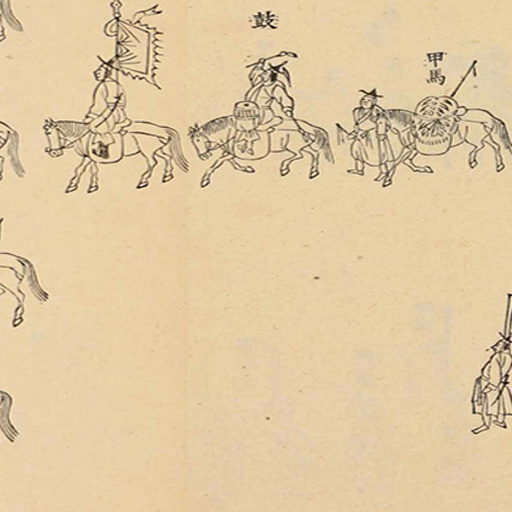 鼓
甲馬